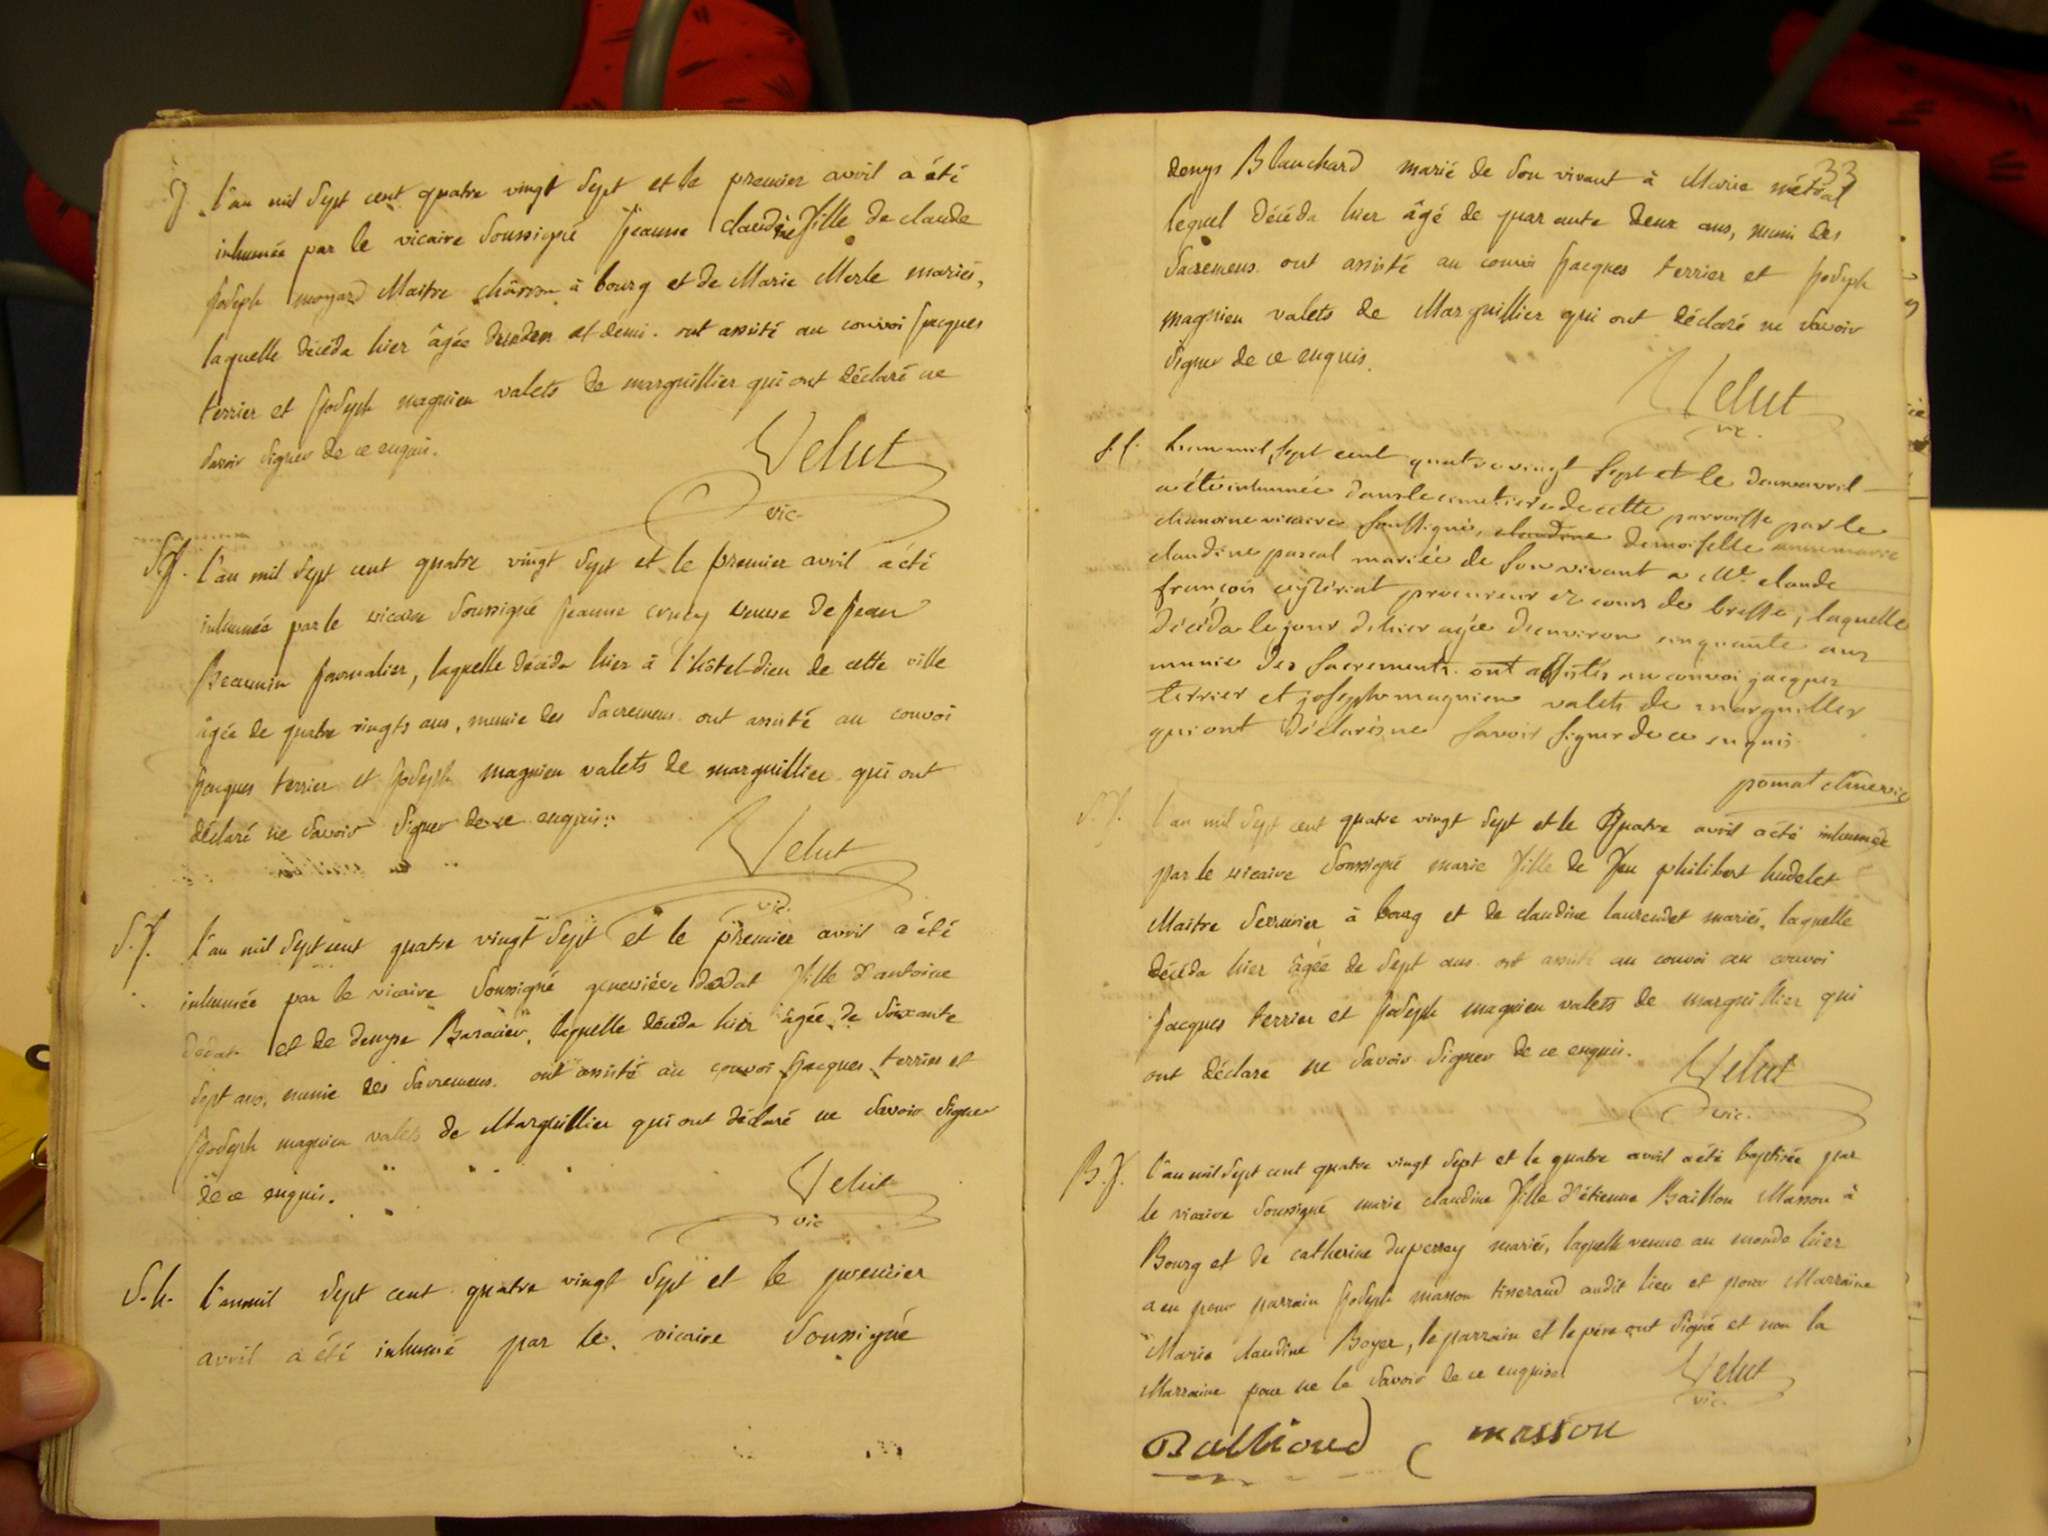 f. l'an mil sept cent quatre vingt sept et le premier avril a été
inhumée par le vicaire soussigné jeanne claudine fille de claude
joseph moyard Maitre à bourg et de Marie Merle mariés,
laquelle décéda hier âgée et demi. ont assisté au convoi jacques
terrier et joseph magnien valets de marguillier qui ont déclaré ne
savoir signer de ce enquis.
Velut
vic.
S.f. l'an mil sept cent quatre vingt sept et le premier avril a été
inhumée par le vicaire soussigné jeanne veuve de jean
journalier, laquelle décéda hier à l'hôtel-dieu de cette ville
âgée de quatre vingts ans, munie des sacremens. ont assisté au convoi
jacques terrier et joseph magnien valets de marguillier qui ont
déclaré ne savoir signer de ce enquis.
Velut
vic.
S.f. l'an mil sept cent quatre vingt sept et le premier avril a été
inhumée par le vicaire soussigné genevieve dedat fille d'antoine
dedat et de denyse laquelle décéda hier âgée de soixante
sept ans, munie des sacremens. ont assisté au convoi jacques terrier et
joseph magnien valets de Marguillier qui ont déclaré ne savoir signer
de ce enquis.
Velut
vic
S.h. l'an mil sept cent quatre vingt sept et le premier
avril a été inhumé par le vicaire soussigné
33
denys Blanchard marié de son vivant à Marie métral
lequel décéda hier âgé de quarante deux ans, muni des
sacremens. ont assisté au convoi jacques terrier et joseph
magnien valets de Marguillier qui ont déclaré ne savoir
signer de ce enquis.
Velut
vic.
S.f. L'an mil sept cent quatre vingt sept et le deux avril
a été inhumée dans le cimetiere de cette parroisse par le
chanoine vicaire soussigné, claudine demoiselle anne marie
claudine pascal mariée de son vivant a Mr. claude
françois procureur ez cours de bresse; laquelle
décéda le jour d'hier agée d'environ cinquante ans
munie des sacrements. ont assistés au convoi jacques
terrier et joseph magnien valets de marguiller
qui ont déclarés ne savoir signer de ce enquis
pomat
S.f. l'an mil sept cent quatre vingt sept et le quatre avril a été inhumée
par le vicaire soussigné marie fille de feu philibert hudelet
Maitre serrurier à bourg et de claudine laurendet mariés, laquelle
décéda hier âgée de sept ans. ont assisté au convoi au convoi
jacques terrier et joseph magnien valets de marguillier qui
ont déclaré ne savoir signer de ce enquis.
Velut
vic.
B.f. l'an mil sept cent quatre vingt sept et le quatre avril a été baptisée par
le vicaire soussigné marie claudine fille d'étienne Baillon Masson à
Bourg et de catherine duperray mariés, laquelle venue au monde hier
a eu pour parrain joseph masson tisserand audit lieu et pour Marraine
Marie claudine Boyer, le parrain et le père ont signé et non la
Marraine pour ne le savoir de ce enquise.
Velut
vic.
Ballioud masson